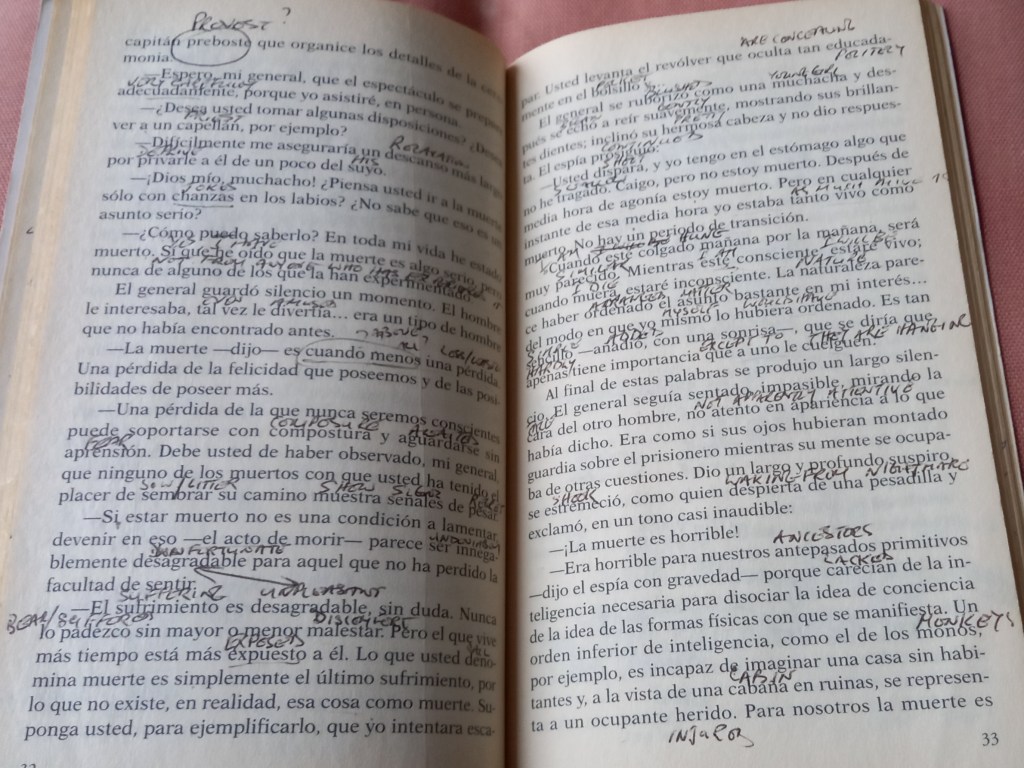 PROVOST ?
capitán preboste que organice los detalles de la cere-
monia.
—Espero, mi general, que el espectáculo se prepare
adecuadamente, porque yo asistiré, en persona.
—¿Desea usted tomar algunas disposiciones? ¿Desea
ver a un capellán, por ejemplo?
PRIEST
—Difícilmente me aseguraría un descanso más largo
HIS
por privarle a él de un poco del suyo.
—¡Dios mío, muchacho! ¿Piensa usted ir a la muerte
JOKES
sólo con chanzas en los labios? ¿No sabe que eso es un
asunto serio?
—¿Cómo puedo saberlo? En toda mi vida he estado
muerto. Sí que he oído que la muerte es algo serio, pero
nunca de alguno de los que la han experimentado.
El general guardó silencio un momento. El hombre
EVEN AMUSED
le interesaba, tal vez le divertía... era un tipo de hombre
que no había encontrado antes.
ABOVE ALL
—La muerte —dijo— es cuando menos una pérdida.
Una pérdida de la felicidad que poseemos y de las posi-
bilidades de poseer más.
—Una pérdida de la que nunca seremos conscientes
COMPOSURE
puede soportarse con compostura y aguardarse sin
FEAR
aprensión. Debe usted de haber observado, mi general,
que ninguno de los muertos con que usted ha tenido el
SOW/LITTER SHOW SIGNS REGRET
placer de sembrar su camino muestra señales de pesar.
—Si estar muerto no es una condición a lamentar,
devenir en eso —el acto de morir— parece ser innega-
UNFORTUNATE
blemente desagradable para aquel que no ha perdido la
facultad de sentir.
SUFFERING UNPLEASANT
—El sufrimiento es desagradable, sin duda. Nunca
BEAR/SUFFER DISCOMFORT
lo padezco sin mayor o menor malestar. Pero el que vive
EXPOSED
más tiempo está más expuesto a él. Lo que usted deno-
mina muerte es simplemente el último sufrimiento, por
lo que no existe, en realidad, esa cosa como muerte. Su-
ponga usted, para ejemplificarlo, que yo intentara esca-
ARE CONCEALING
par. Usted levanta el revólver que oculta tan educada-
POLITELY
mente en el bolsillo
POCKET BLUSHED
El general se ruborizó como una muchacha y des-
GENTLY
pués se echó a reír suavemente, mostrando sus brillan-
tes dientes; inclinó su hermosa cabeza y no dio respues-
CONTINUED
ta. El espía prosiguió:
SHOOT
—Usted dispara, y yo tengo en el estómago algo que
no he tragado. Caigo, pero no estoy muerto. Después de
media hora de agonía estoy muerto. Pero en cualquier
AS MUCH ALIVE
instante de esa media hora yo estaba tanto vivo como
muerto. No hay un periodo de transición.
HUNG
»Cuando esté colgado mañana por la mañana, será
SIMILAR I AM I WILL BE
muy parecido. Mientras esté consciente, estaré vivo;
I DIE NATURE
cuando muera, estaré inconsciente. La naturaleza pare-
ARRANGED MATTER
ce haber ordenado el asunto bastante en mi interés...
MYSELF WOULD HAVE
del modo en que yo mismo lo hubiera ordenado. Es tan
SIMPLE ADDED EXCEPT TO THEY ARE HANGING
sencillo —añadió, con una sonrisa—, que se diría que
HARDLY
apenas tiene importancia que a uno le cuelguen.
Al final de estas palabras se produjo un largo silen-
cio. El general seguía sentado, impasible, mirando la
NOT APPARENTLY ATTENTIVE
cara del otro hombre, no atento en apariencia a lo que
había dicho. Era como si sus ojos hubieran montado
guardia sobre el prisionero mientras su mente se ocupa-
ba de otras cuestiones. Dio un largo y profundo suspiro,
SHOOK WAKING FROM NIGHTMARE
se estremeció, como quien despierta de una pesadilla y
exclamó, en un tono casi inaudible:
—¡La muerte es horrible!
ANCESTORS
—Era horrible para nuestros antepasados primitivos
LACKED
—dijo el espía con gravedad— porque carecían de la in-
teligencia necesaria para disociar la idea de conciencia
de la idea de las formas físicas con que se manifiesta. Un
MONKEYS
orden inferior de inteligencia, como el de los monos,
por ejemplo, es incapaz de imaginar una casa sin habi-
CABIN
tantes y, a la vista de una cabaña en ruinas, se represen-
ta a un ocupante herido. Para nosotros la muerte es
INJURED
33